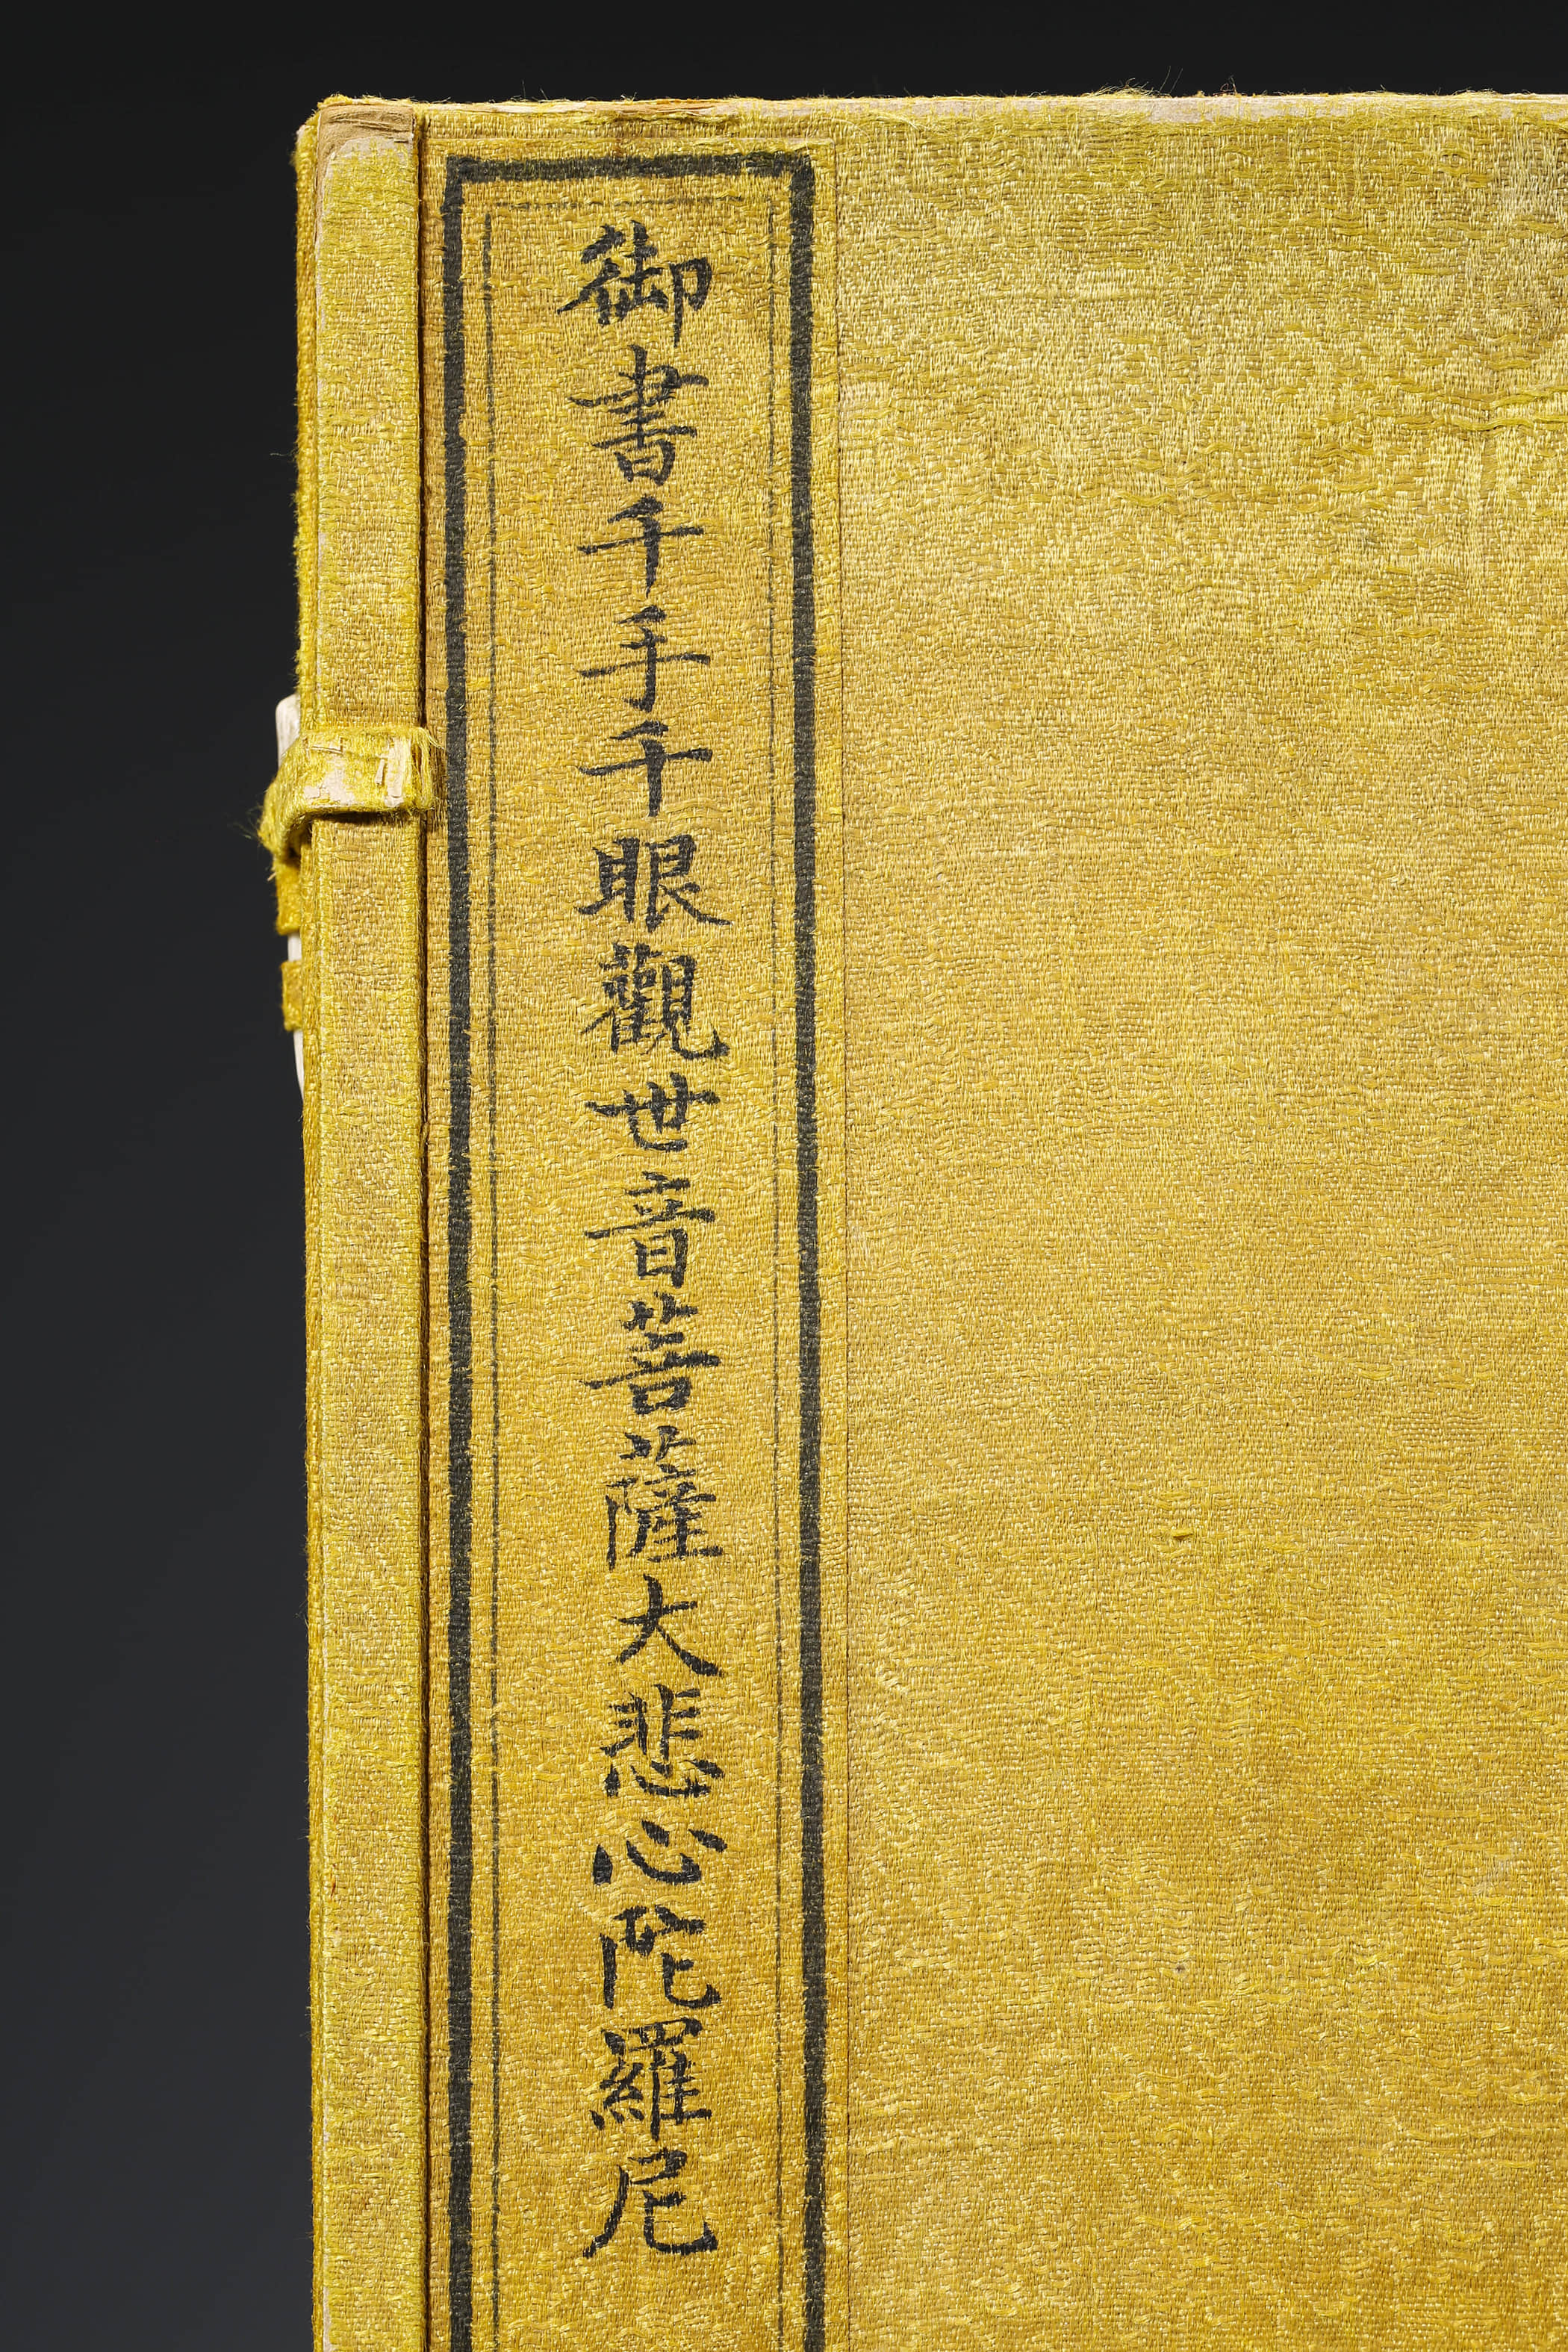 御書千手千眼觀世音菩薩大悲心陀羅尼